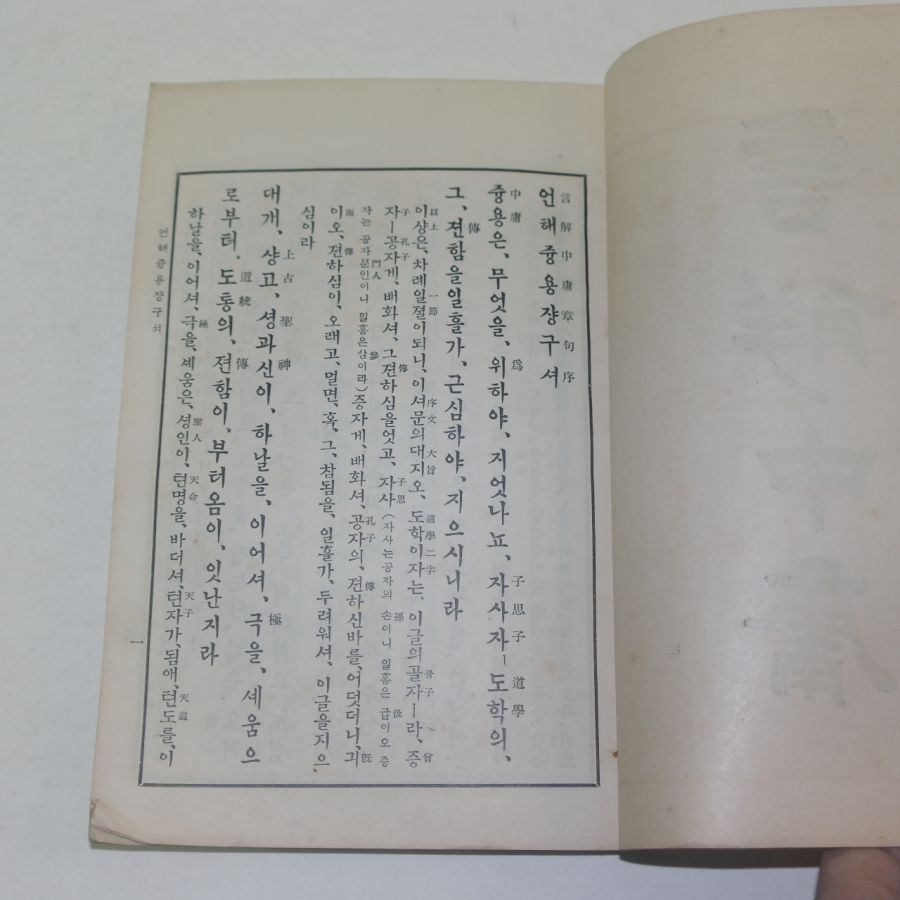 언해즁용쟝구셔
言解中庸章句序
즁용은、무엇을、위하야、지엇나뇨、자사자ㅣ도학의、
中庸 爲 子思子 道學
그、젼함을일흘가、근심하야、지으시니라
傳
이샹은、차례일졀이되니、이셔문의대지오、도학이자는、이글의골자ㅣ라、증
以上 一節 序文 大旨 道學二字 骨子 曾
자ㅣ공자게、배화셔、그젼하심을엇고、자사(자사는공자의 손이니 일홈은 급이오 증
子 孔子 傳 子思 孫 伋
자는 공자문인이니 일홈은삼이라)증자게、배화셔、공자의、젼하신바를、어덧더니、긔
門人 參 孔子 傳 既
이오、젼하심이、오래고、멀면、혹、그、참됨을、일흘가、두려워셔、이글을지으
傳
심이라
대개、샹고、셩과신이、하날을、이어셔、극을、셰움으
上古 聖 神 極
로부터、도통의、젼함이、부터옴이、잇난지라
道統 傳
하날을、이어셔、극을、셰움은、셩인이、텬명을、바더셔、텬자가、됨애、텬도를、이
極 聖人 天命 天子 天道
언해즁용쟝구셔
一